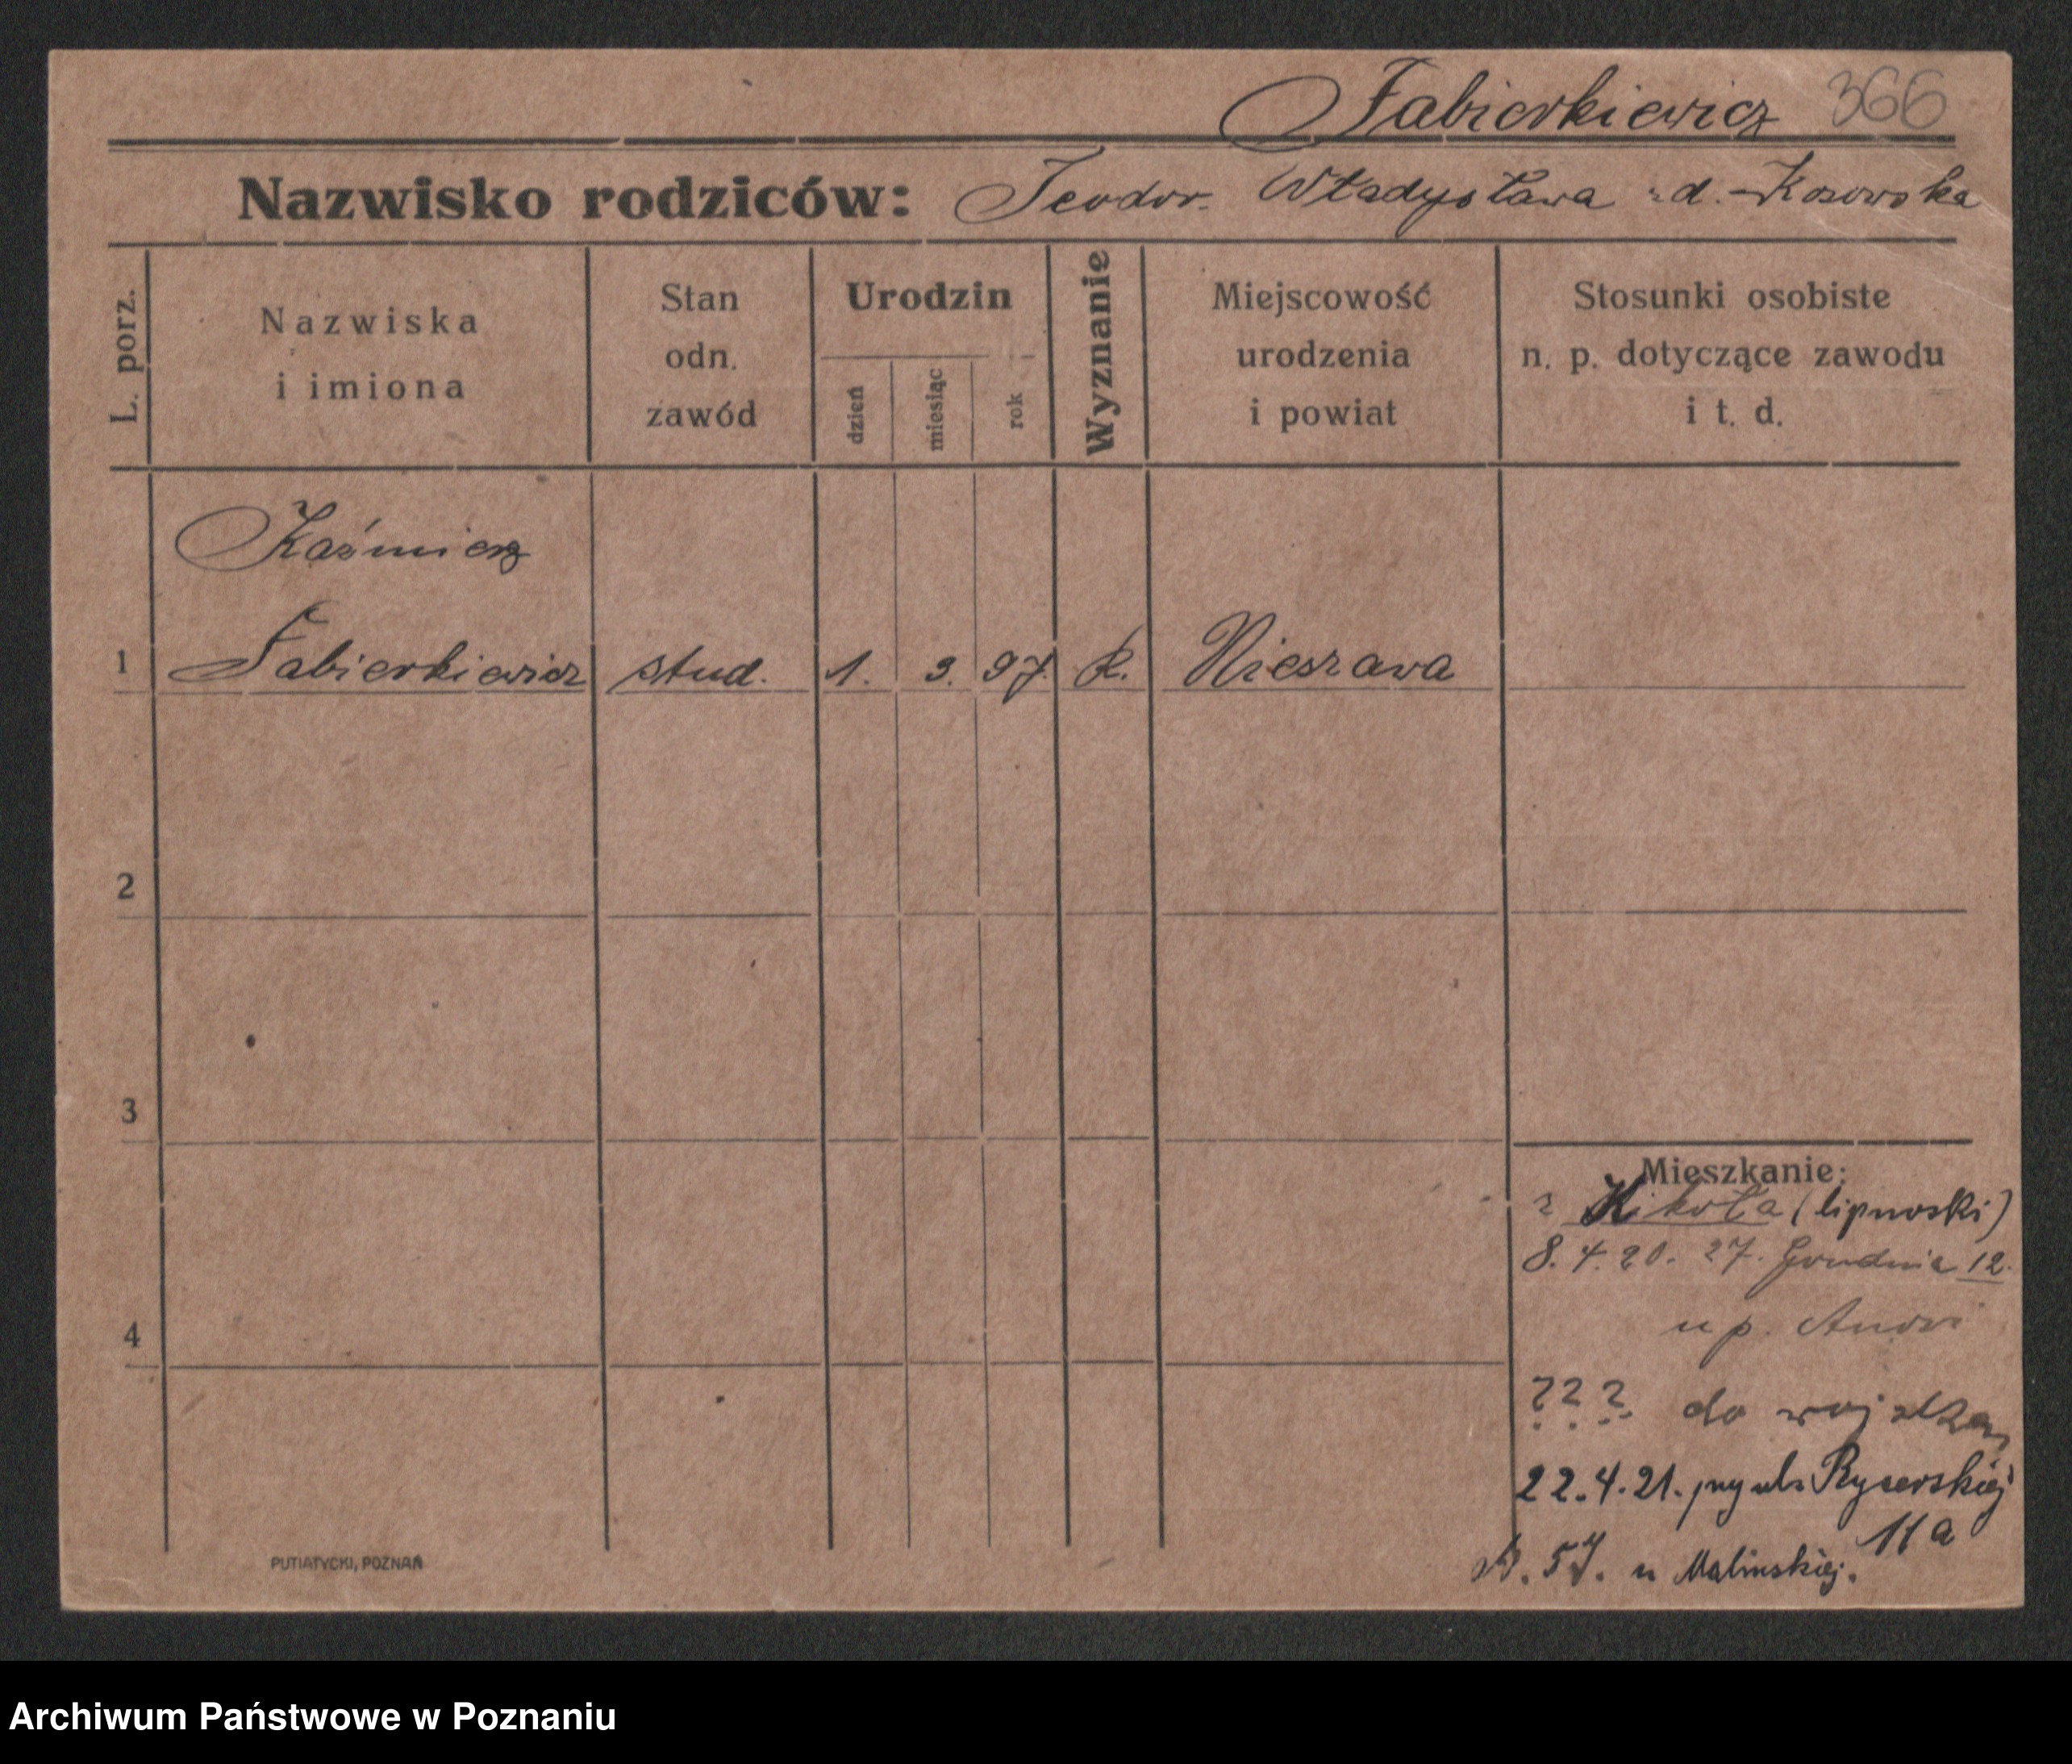 Fabierkiewicz 366
Nazwisko rodziców: Teodor. Władysława z d. Kosowska
L. porz.
Nazwiska
i imiona
Stan
odn.
zawód
Urodzin
dzień
miesiąc
rok
Wyznanie
Miejscowość
urodzenia
i powiat
Stosunki osobiste
n. p. dotyczące zawodu
i t. d.
Kaźmierz
1 Fabierkiewicz stud. 1. 3. 97. K. Nieszawa
2
3
4
Mieszkanie:
z Kikoła (lipnoski)
8. 4. 20. 27. Grudnia 12.
u p.
??? do wojska
22.4.21. przy ul. Rycerskiej
11a
57. u Malinskiej.
PUTIATYCKI, POZNAŃ
Archiwum Państwowe w Poznaniu